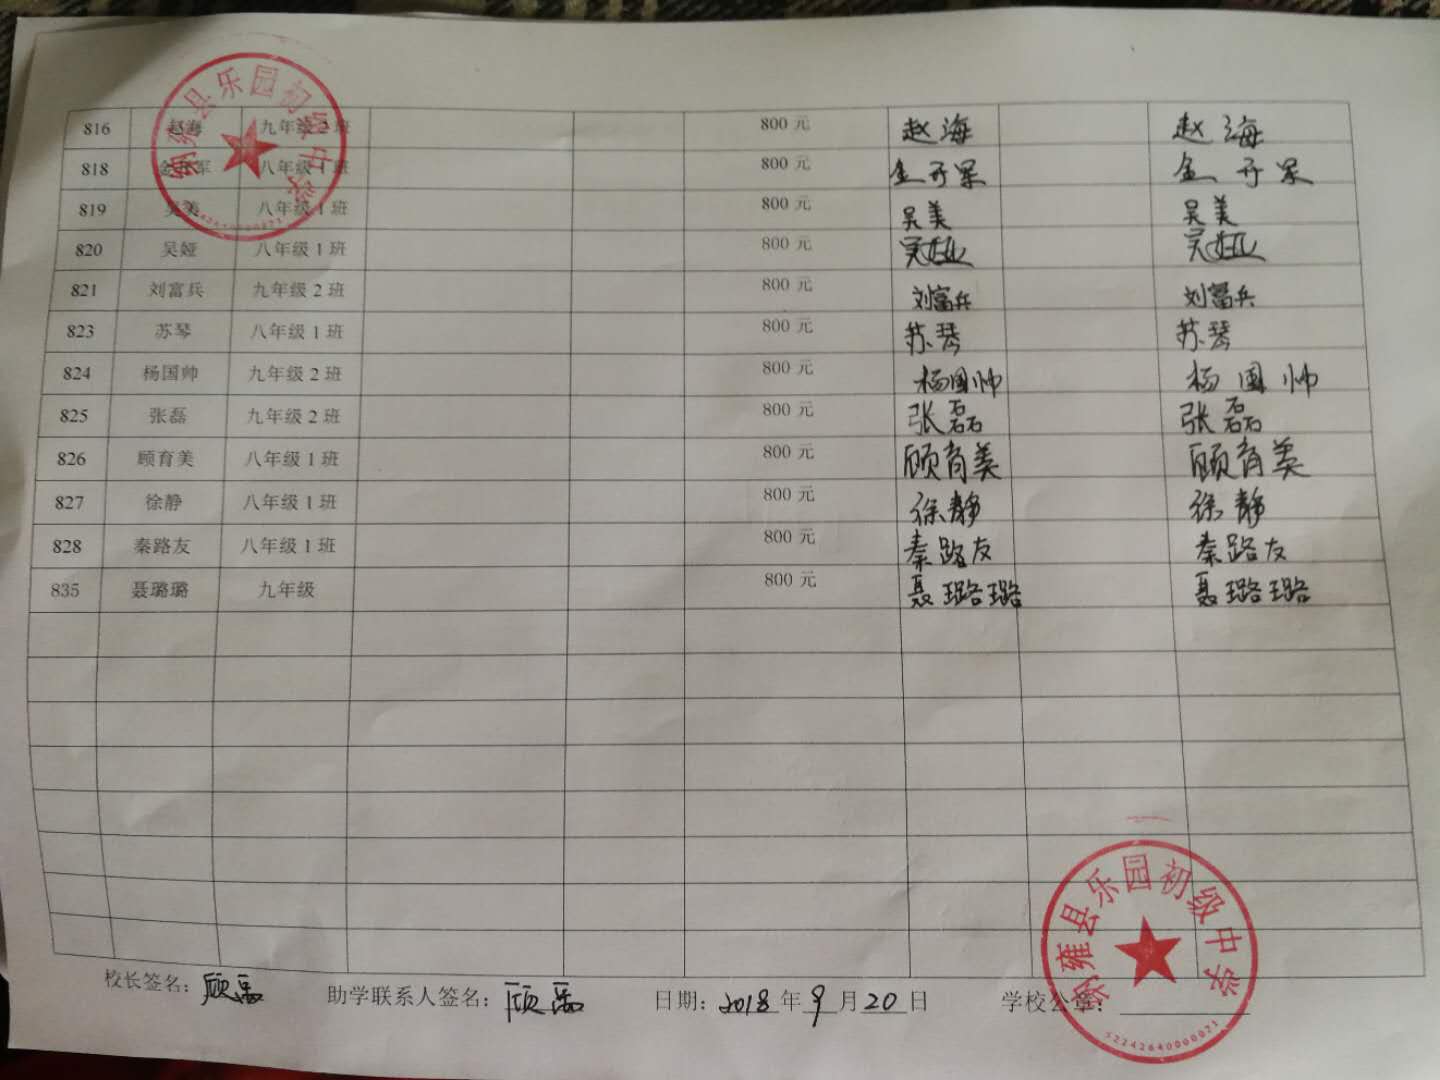 816 赵海 九年级 2 班 800 元 赵海 赵海
818 八年级 1 班 800 元
819 吴美 八年级 1 班 800 元 吴美 吴美
820 吴娅 八年级 1 班 800 元 吴娅 吴娅
821 刘富兵 九年级 2 班 800 元 刘富兵 刘富兵
823 苏琴 八年级 1 班 800 元 苏琴 苏琴
824 杨国帅 九年级 2 班 800 元 杨国帅 杨国帅
825 张磊 九年级 2 班 800 元 张磊 张磊
826 顾育美 八年级 1 班 800 元 顾育美 顾育美
827 徐静 八年级 1 班 800 元 徐静 徐静
828 秦路友 八年级 1 班 800 元 秦路友 秦路友
835 聂璐璐 九年级 800 元 聂璐璐 聂璐璐
校长签名： 助学联系人签名： 日期：2018年9月20日 学校公章：
纳雍县乐园初级中学
纳雍县乐园初级中学
5224264000021